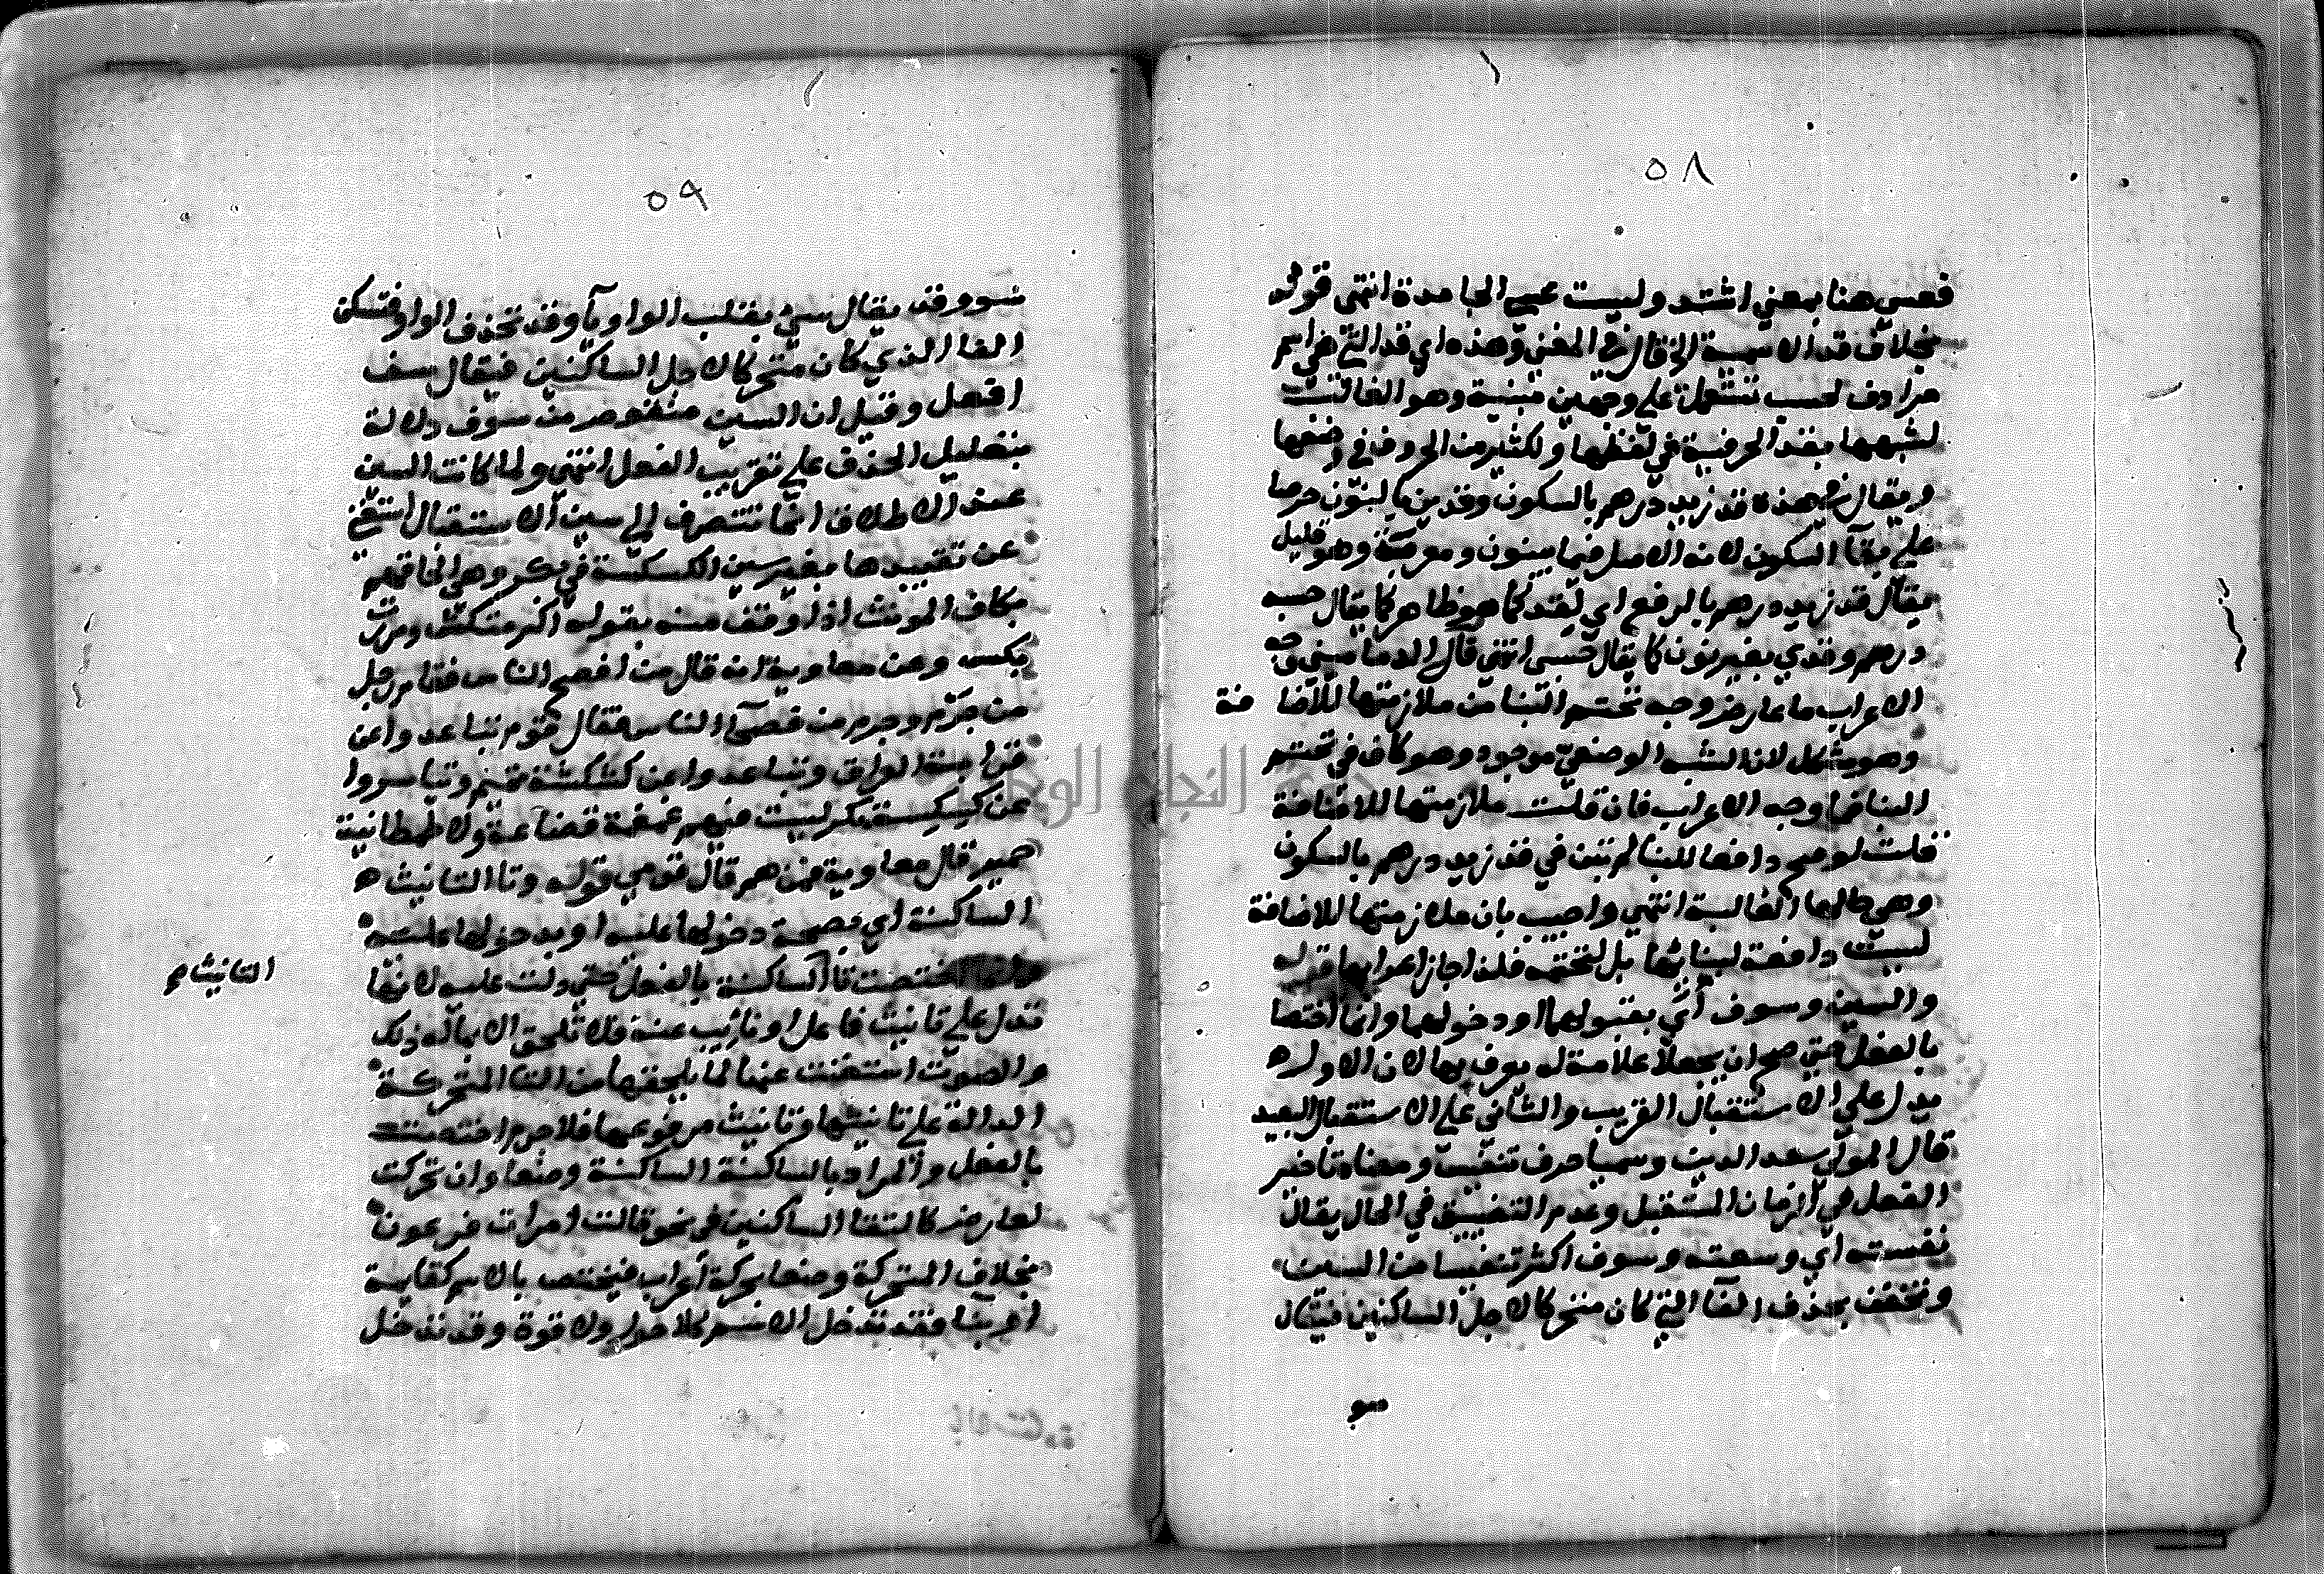 ٥٨
فعسى هنا بمعني اشتد وليست عسى الجامدة انتهى قوله
بخلاف قد الاسمية الخ قال في المغني وهذه اي قد التي هي اسم
مرادف لحسب تستعمل على وجهين مبنية وهو الغالب
لشبهها بقد الحرفية في لفظها ولكثير من الحروف في وضعها
ويقال في هذه قد زيد درهم بالسكون وقدني بالنون حرصا
على بقآ السكون لانه الاصل فيما يبنون ومعربة وهو قليل
يقال قد زيد درهم بالرفع اي كما هو ظاهر كما يقال حسبه
درهم وقدي بغير نون كما يقال حسبي انتهى قال الدماميني وجه
الاعراب ما عارض وجه تحتم البنا من ملازمتها للاضافة
وهو مشكل لان الشبه الوضعي موجود وهو كاف في تحتم
البنا فما وجه الاعراب فان قلت ملازمتها للاضافة
قلت لو صح دافعا للبنا لم تبن في قد زيد درهم بالسكون
وهي حالها الغالبة انتهى واجيب بان ملازمتها للاضافة
ليست دافعة لبنائها بل لتحتمه فلذا جاز اعرابها قوله
والسين وسوف اي بقبولهما او دخولهما وانما اختصا
بالفعل حتى صح ان يجعلا علامة له يعرف بها لان الاول
يدل على الاستقبال القريب والثاني على الاستقبال البعيد
قال المولى سعد الدين وسميا حرف تنفيس ومعناه تاخير
الفعل في الزمان المستقبل وعدم التضييق في الحال يقال
نفسته اي وسعته وسوف اكثر تنفيسا من السين
وتخفف بحذف الفآ التي كان متحركا لاجل الساكنين فيقال
سو
٥٩
سو وقد يقال سي بقلب الواو يآ وقد تحذف الواو فتسكن
الفا الذي كان متحركا لاجل الساكنين فيقال سف
افعل وقيل ان السين منقوص من سوف دلالة
بتقليل الحذف على تقريب الفعل انتهى ولما كانت السين
عند الاطلاق انما تنصرف الى سين الاستقبال استغنى
عن تقييدها بغير سين الكسكسة في بكر وهي الحاقهم
بكاف المونث اذا وقف منه بقوله اكرمتكس ومررت
بكس وعن معاوية انه قال من افصح الناس فقام رجل
من جرم وجرم من فصحآ الناس فقال قوم تباعدوا عن
العراق وتباعدوا عن كشكشة تميم وتياسروا
عن كسكسة بكر ليست فيهم غمغمة قضاعة ولا طمطانية
حمير قال معاوية فمن هم قال قومي قوله وتا التانيث
الساكنة اي بصحة دخولها عليه او بدخولها عليه
وانما اختصت تا الساكنة بالفعل حتى دلت عليه لانها
التانيث صح
تدل على تانيث فاعل او نايب عنه فلا تلحق الا بماله ذلك
والصوت استغنت عنها لما يلحقها من التا المتحركة
الدالة على تانيثها وتانيث مرفوعها فلا جرم اختصت
بالفعل والمراد بالساكنة الساكنة وضعا وان تحركت
لعارض كالتقا الساكنين في نحو قالت امرات فرعون
بخلاف المتحركة وضعا بحركة اعراب فيختص بالاسم كقايمة
او بنا فقد تدخل الاسم كلا حول ولا قوة وقد تدخل